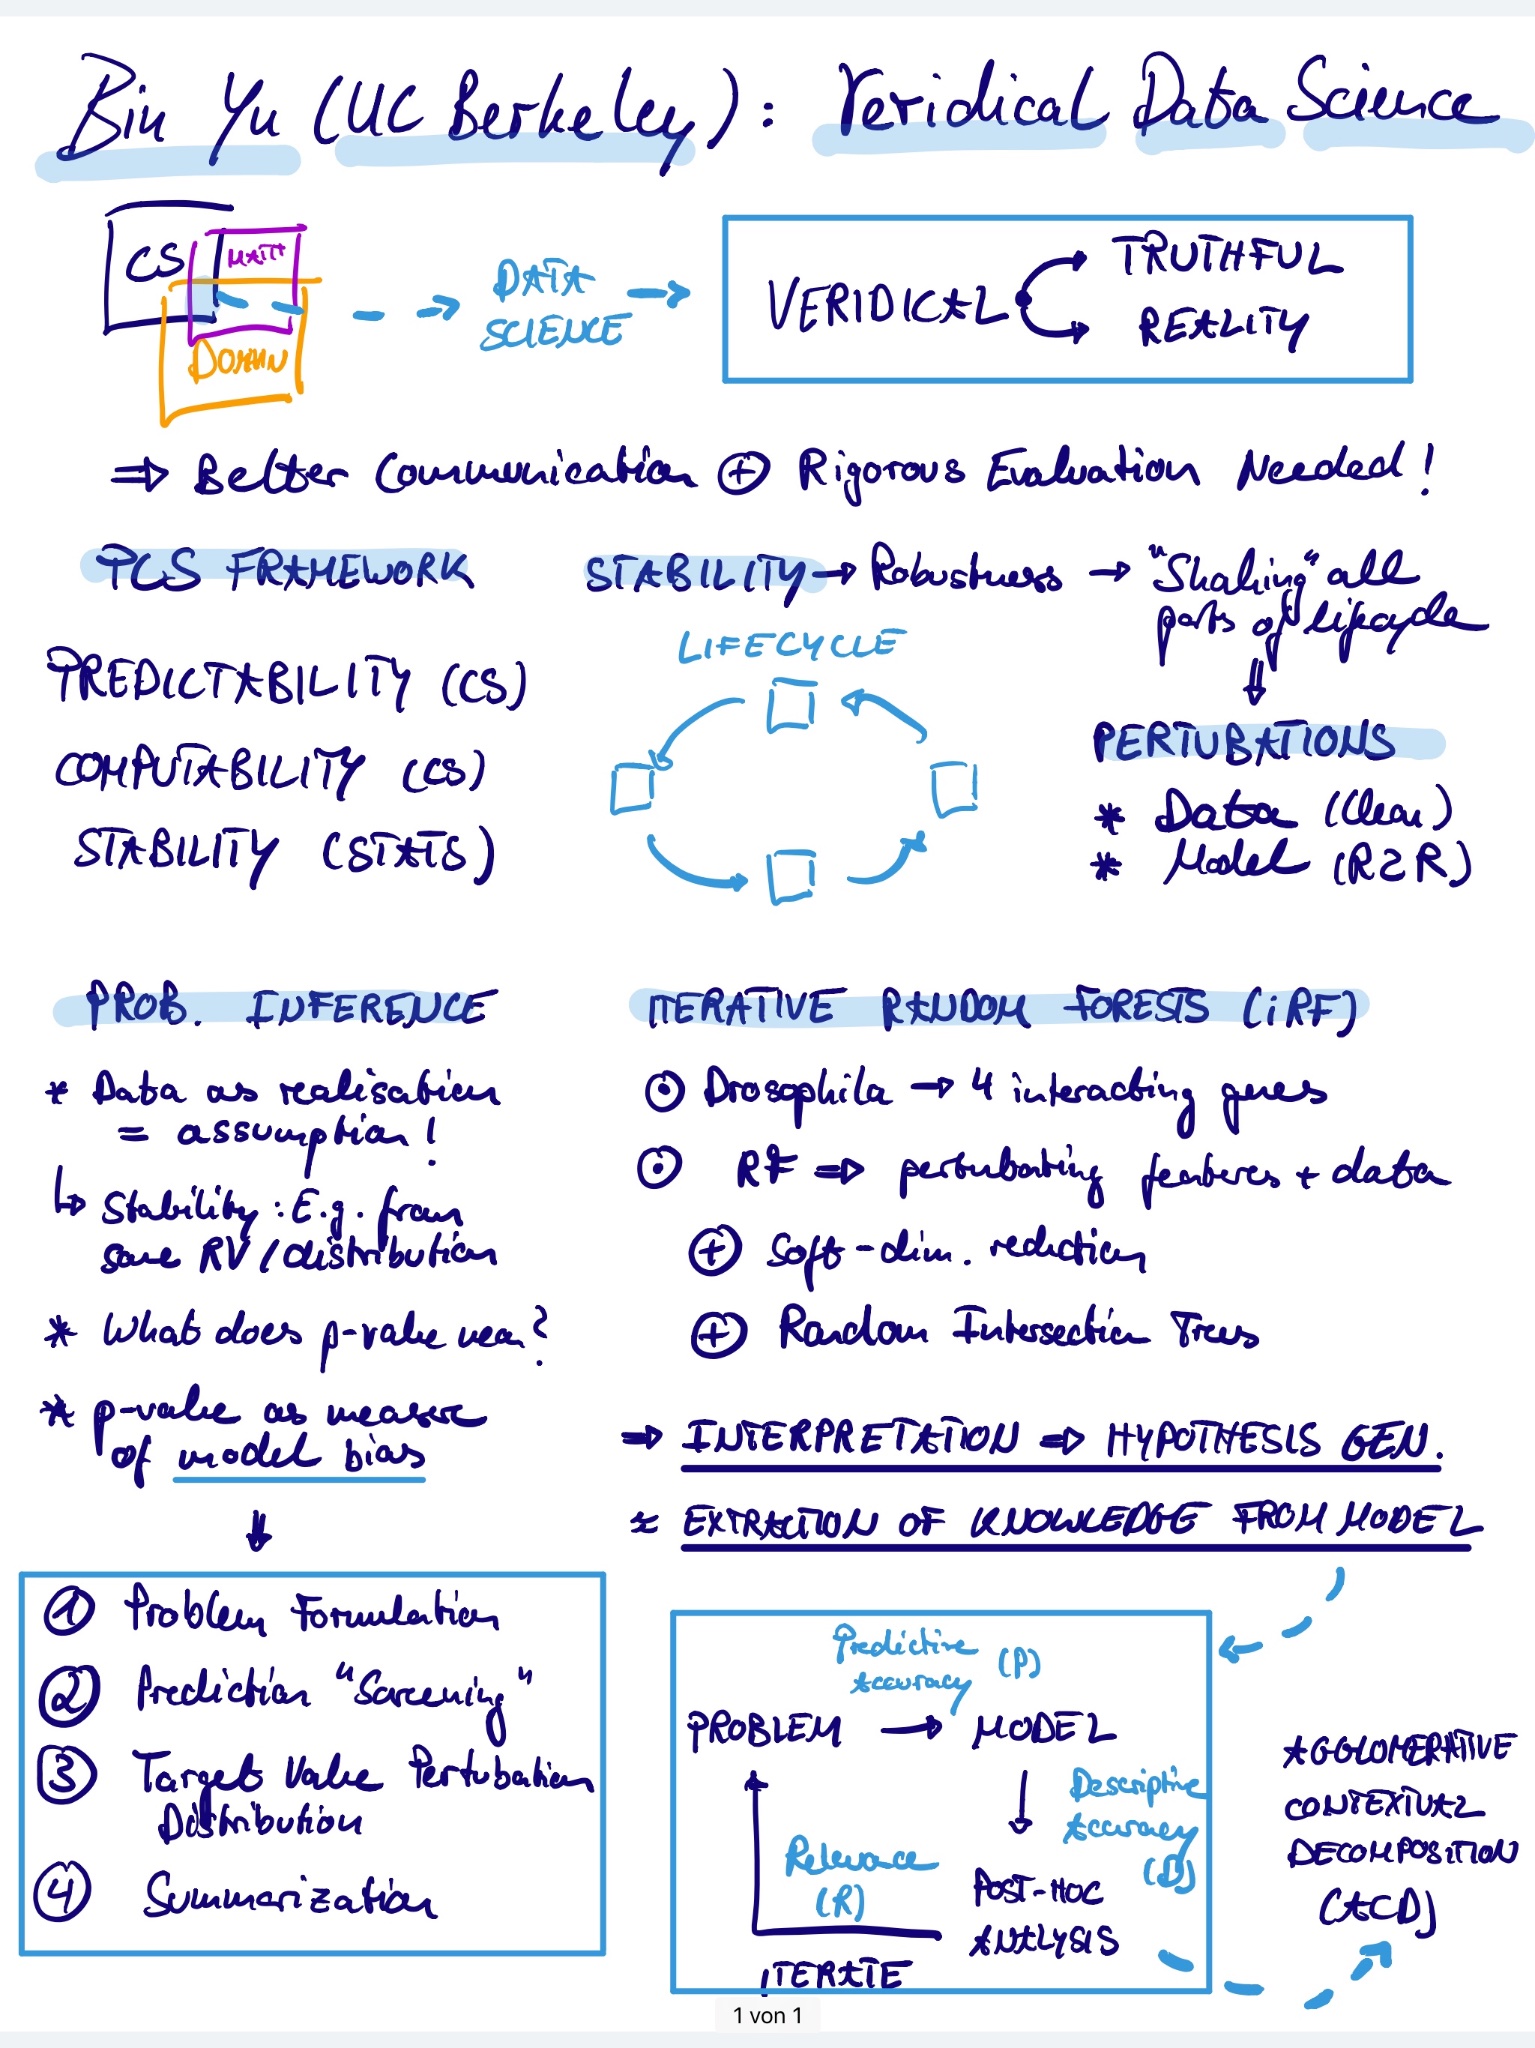 Bin Yu (UC Berkeley): Veridical Data Science
CS
MATH
DOMAIN
DATA
SCIENCE
VERIDICAL
TRUTHFUL
REALITY
⇒ Better Communication ⊕ Rigorous Evaluation Needed!
PCS FRAMEWORK
PREDICTABILITY (CS)
COMPUTABILITY (CS)
STABILITY (STATS)
STABILITY → Robustness → "Shaking" all
parts of lifecycle
LIFECYCLE
PERTUBATIONS
* Data (Clear)
* Model (R2R)
PROB. INFERENCE
* Data as realisation
= assumption!
↳ Stability: E.g. from
same RV / distribution
* What does p-value mean?
* p-value as measure
of model bias
① Problem Formulation
② Prediction "Screening"
③ Target Value Pertubation
Distribution
④ Summarization
ITERATIVE RANDOM FORESTS (iRF)
⊙ Drosophila → 4 interacting genes
⊙ RF ⇒ pertubating features + data
⊕ Soft-dim. reduction
⊕ Random Intersection Trees
⇒ INTERPRETATION ⇒ HYPOTHESIS GEN.
≈ EXTRACTION OF KNOWLEDGE FROM MODEL
Predictive
Accuracy (P)
PROBLEM → MODEL
Descriptive
Accuracy
(D)
Relevance
(R)
POST-HOC
ANALYSIS
ITERATE
AGGLOMERATIVE
CONTEXTUAL
DECOMPOSITION
(ACD)
1 von 1